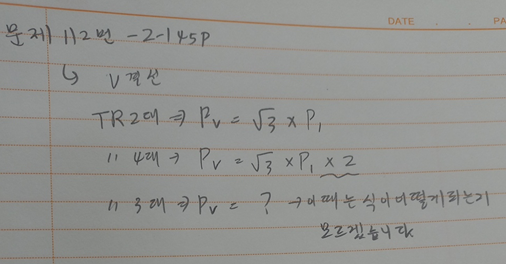 DATE
PA
문제 112번 -2-145P
↳ V결선
TR2대 ⇒ Pv = √3 × P₁
〃 4대 → Pv = √3 × P₁ × 2
〃 3대 ⇒ Pv = ? → 이때는 식이 어떻게 되는지
모르겠습니다